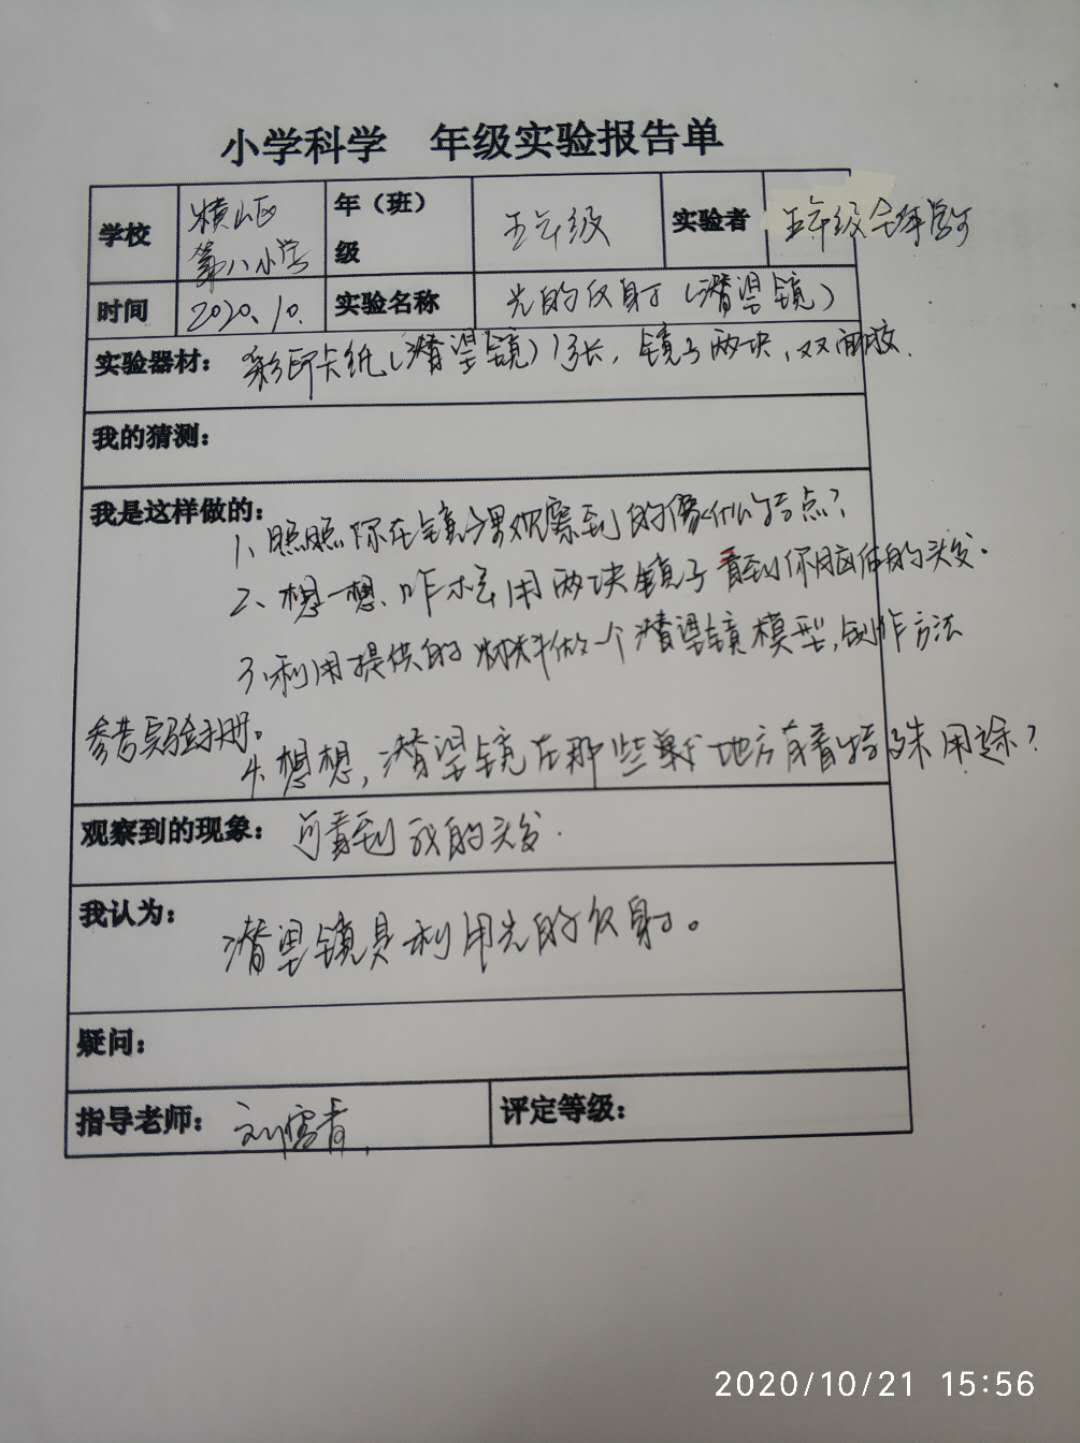 小学科学 年级实验报告单
学校 横山区第八小学 年（班）级 五年级 实验者 五年级全体学生
时间 2020.10. 实验名称 光的反射（潜望镜）
实验器材： 彩印卡纸（潜望镜）1张，镜子两块，双面胶.
我的猜测：
我是这样做的：
1、照照你在镜子里观察到的像什么特点？
2、想一想、咋样用两块镜子看到你脑后的头发.
3、利用提供的材料做一个潜望镜模型，制作方法
参考实验手册。
4、想想，潜望镜在那些地方有着特殊用途？
观察到的现象： 可看到我的头发.
我认为：
潜望镜是利用光的反射。
疑问：
指导老师： 刘 评定等级：
2020/10/21 15:56